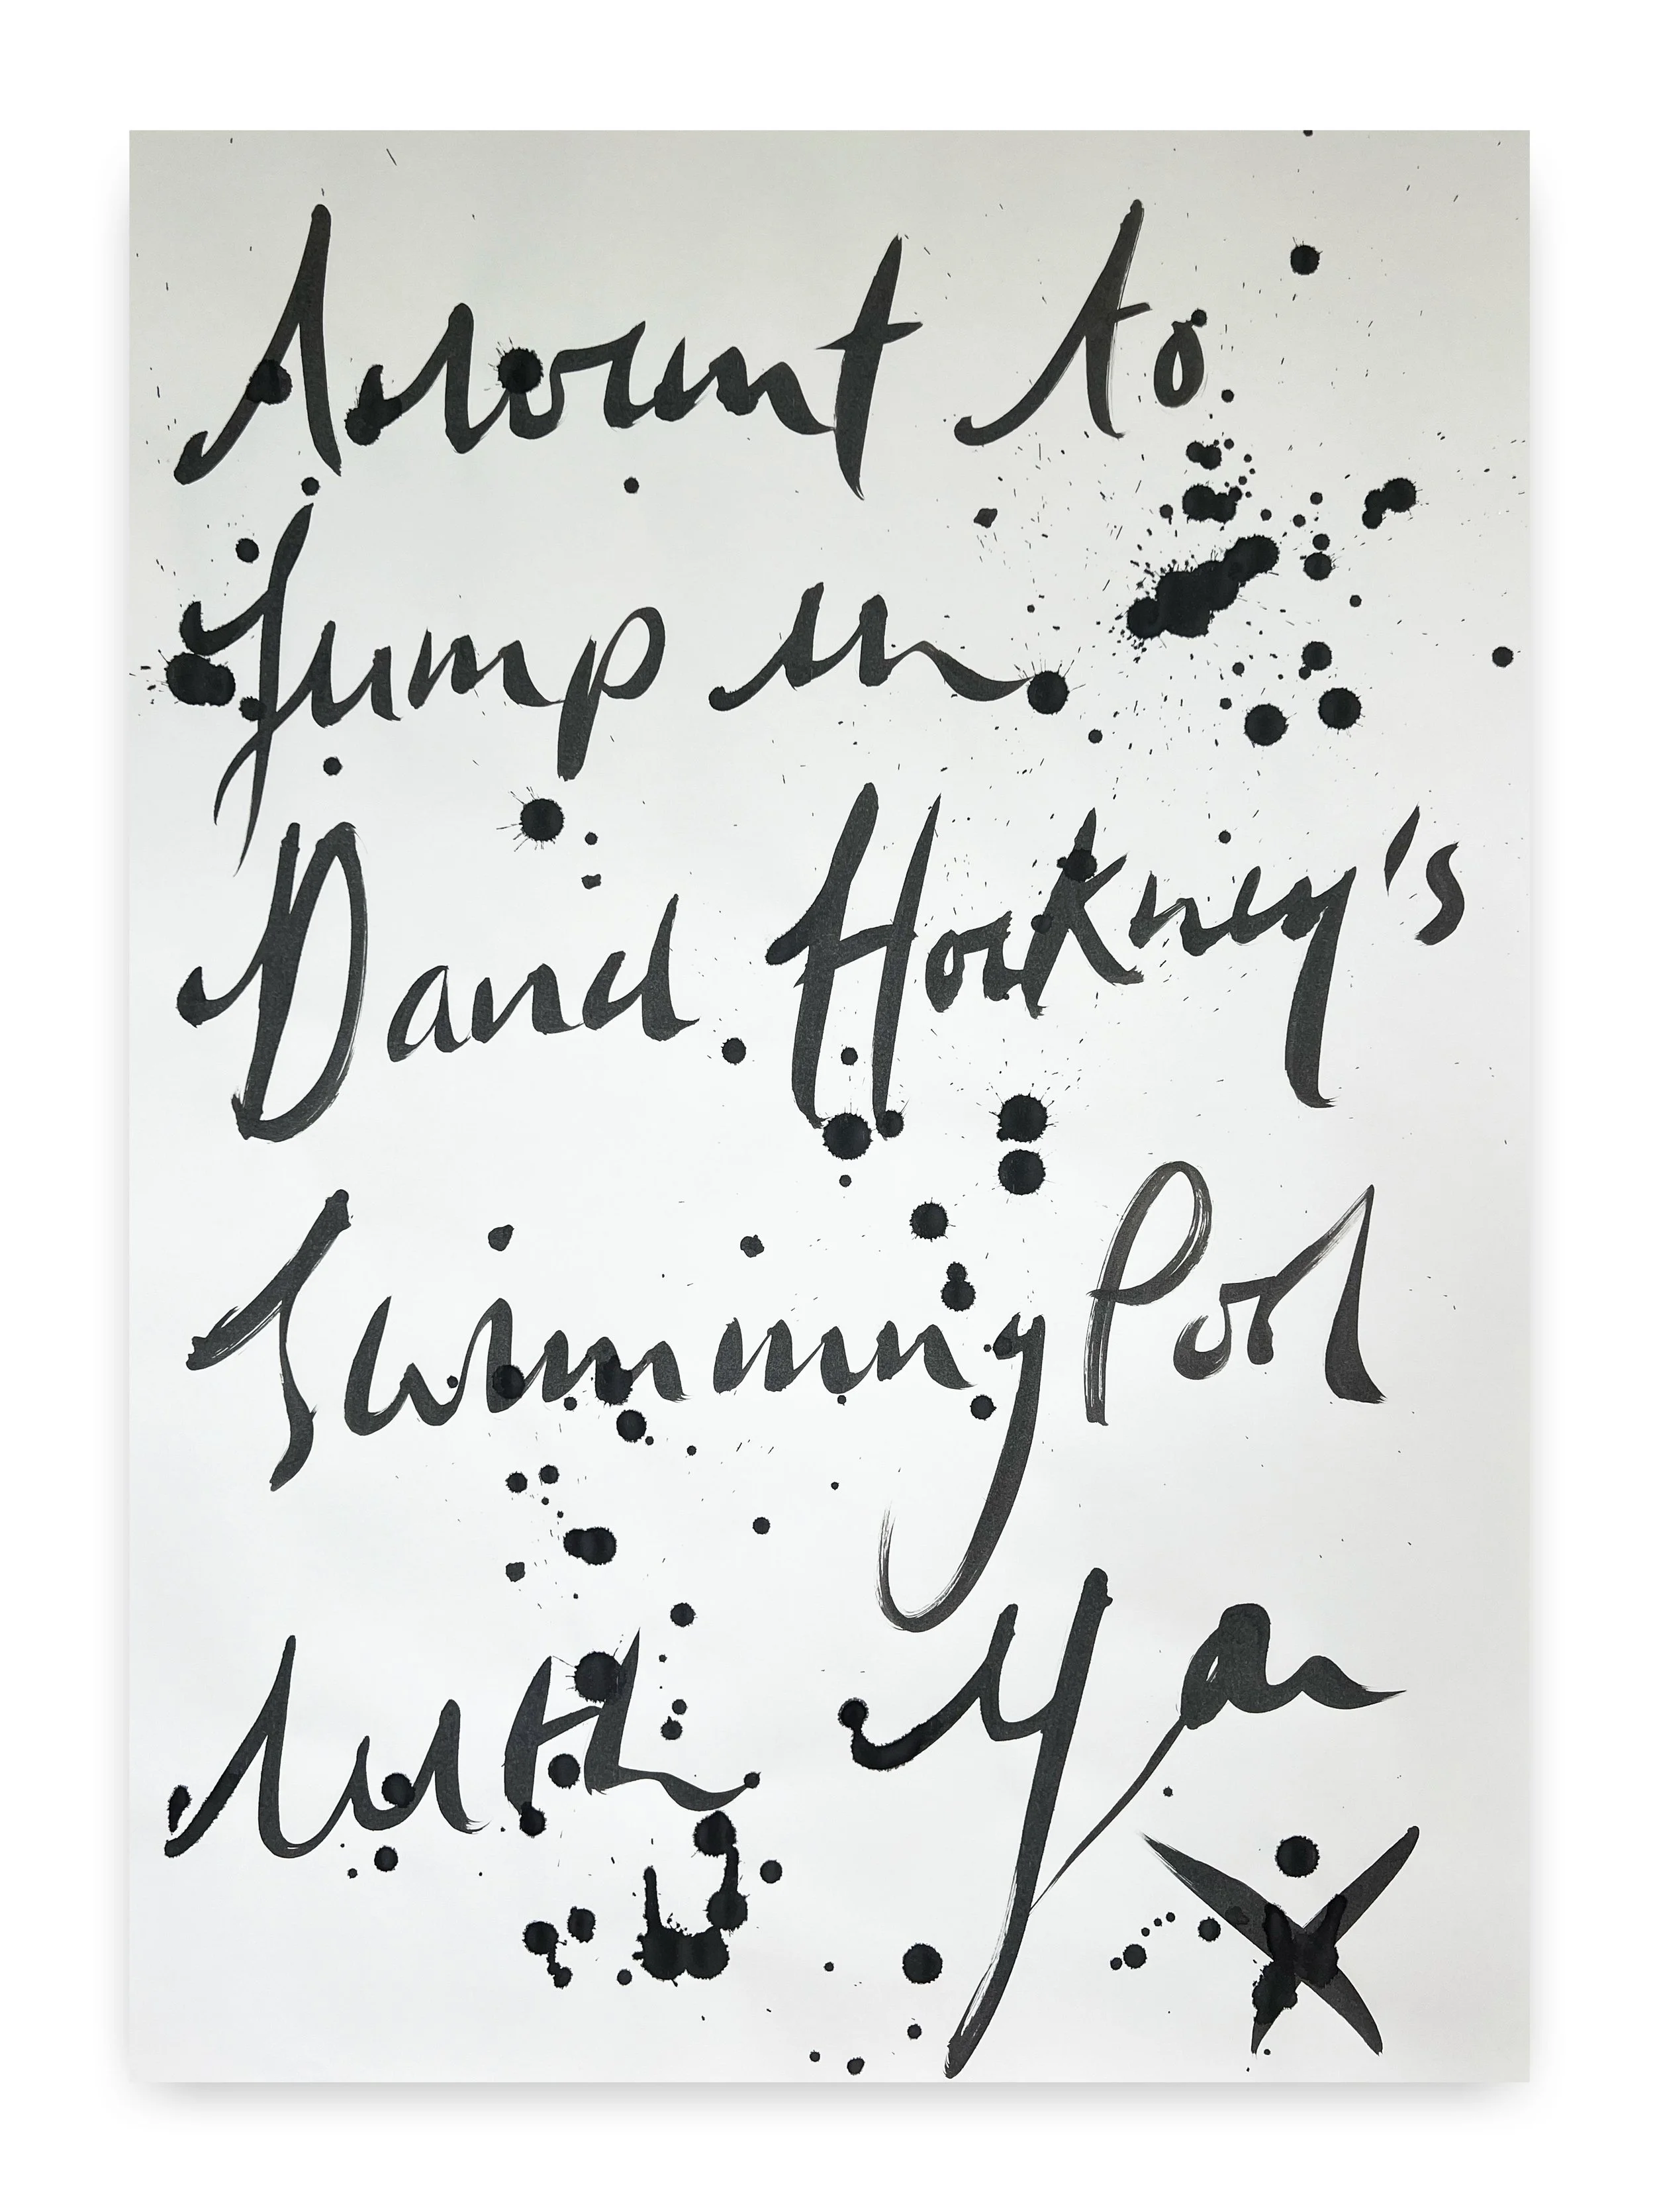 I want to
Jump in
David Hockney's
Swimming Pool
with You
X